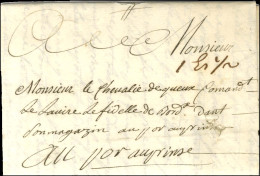 Monsieur
Monsieur le Chevalié de queux Comand.t
Le Navire Le fidelle de Bord.x Dant
Son magazin au por auprince
Au Por auprinse